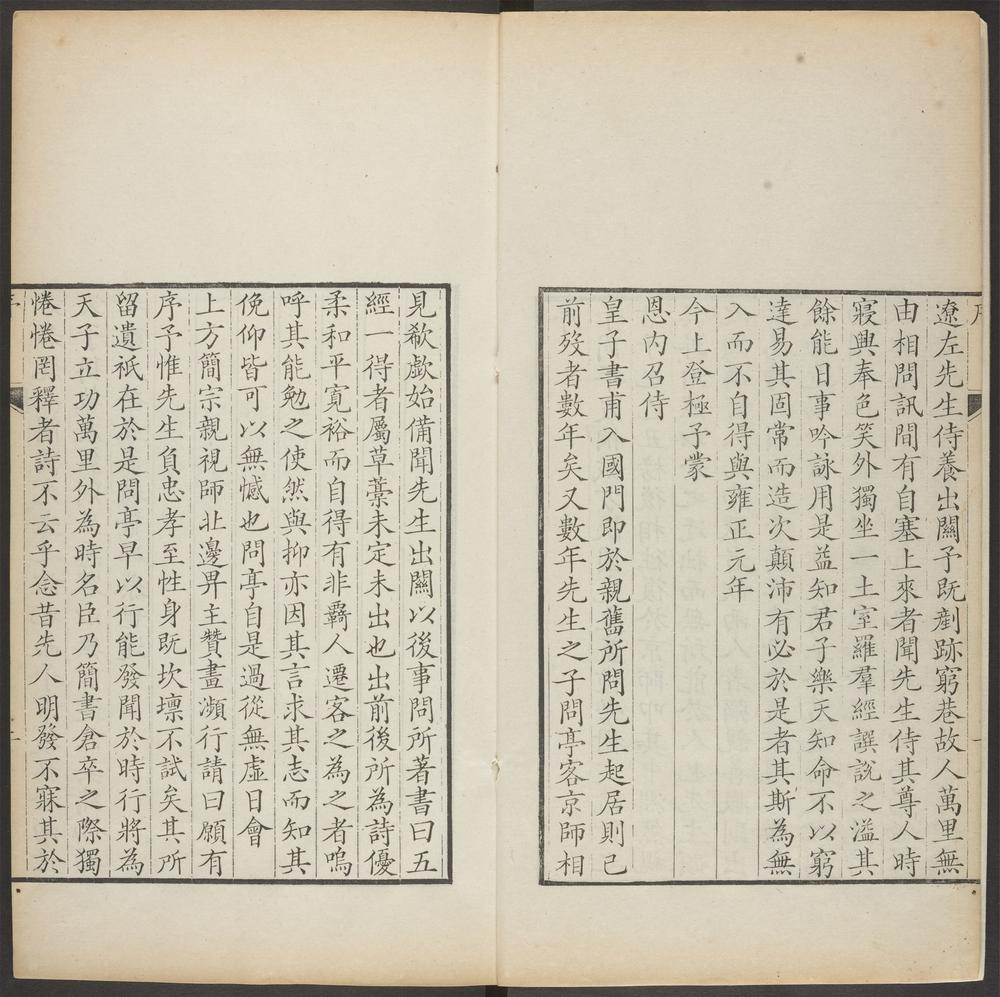 遼左先生侍養出關予既剷跡窮巷故人萬里無
由相問訊間有自塞上來者聞先生侍其尊人時
寢興奉色笑外獨坐一土室羅羣經譔說之溢其
餘能日事吟詠用是益知君子樂天知命不以窮
達易其固常而造次顛沛有必於是者其斯為無
入而不自得與雍正元年
今上登極予蒙
恩內召侍
皇子書甫入國門即於親舊所問先生起居則已
前歿者數年矣又數年先生之子問亭客京師相
見欷歔始備聞先生出關以後事問所著書曰五
經一得者屬草藁未定未出也出前後所為詩優
柔和平寬裕而自得有非羇人遷客之為之者嗚
呼其能勉之使然與抑亦因其言求其志而知其
俛仰皆可以無憾也問亭自是過從無虛日會
上方簡宗親視師北邊畀主贊畫瀕行請曰願有
序予惟先生負忠孝至性身既坎壈不試矣其所
留遺祇在於是問亭早以行能發聞於時行將為
天子立功萬里外為時名臣乃簡書倉卒之際獨
惓惓罔釋者詩不云乎念昔先人明發不寐其於